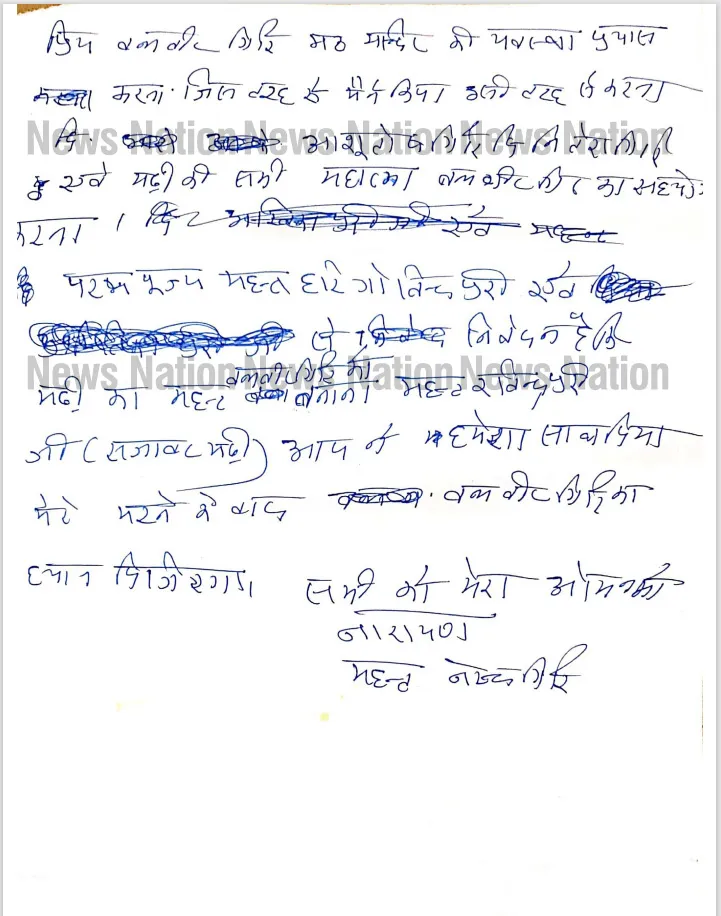 प्रिय बलवीर गिरि मठ मन्दिर की यवस्था प्रयास
करना करना. जिस तरह से मैने किया उसी तरह से करना
News Nation News Nation News Nation
आशूतोष गिरि नितेश गिरि
एवं मढ़ी की सभी महात्मा बलवीर गिरि का सहयोग
करना।
परम पूज्य महन्त हरि गोविन्द पुरी एवं
से निवेदन है कि
News Nation News Nation News Nation
मढ़ी का महन्त बलवीर गिरि को बनाना महन्त रविन्द्र पुरी
जी (सजावट मढ़ी) आप ने हमेशा साथ दिया
मेरे मरने के बाद बलवीर गिरि का
ध्यान दिजिएगा। सभी को मेरा ओम नमो
नारायण
महन्त नरेन्द्र गिरि